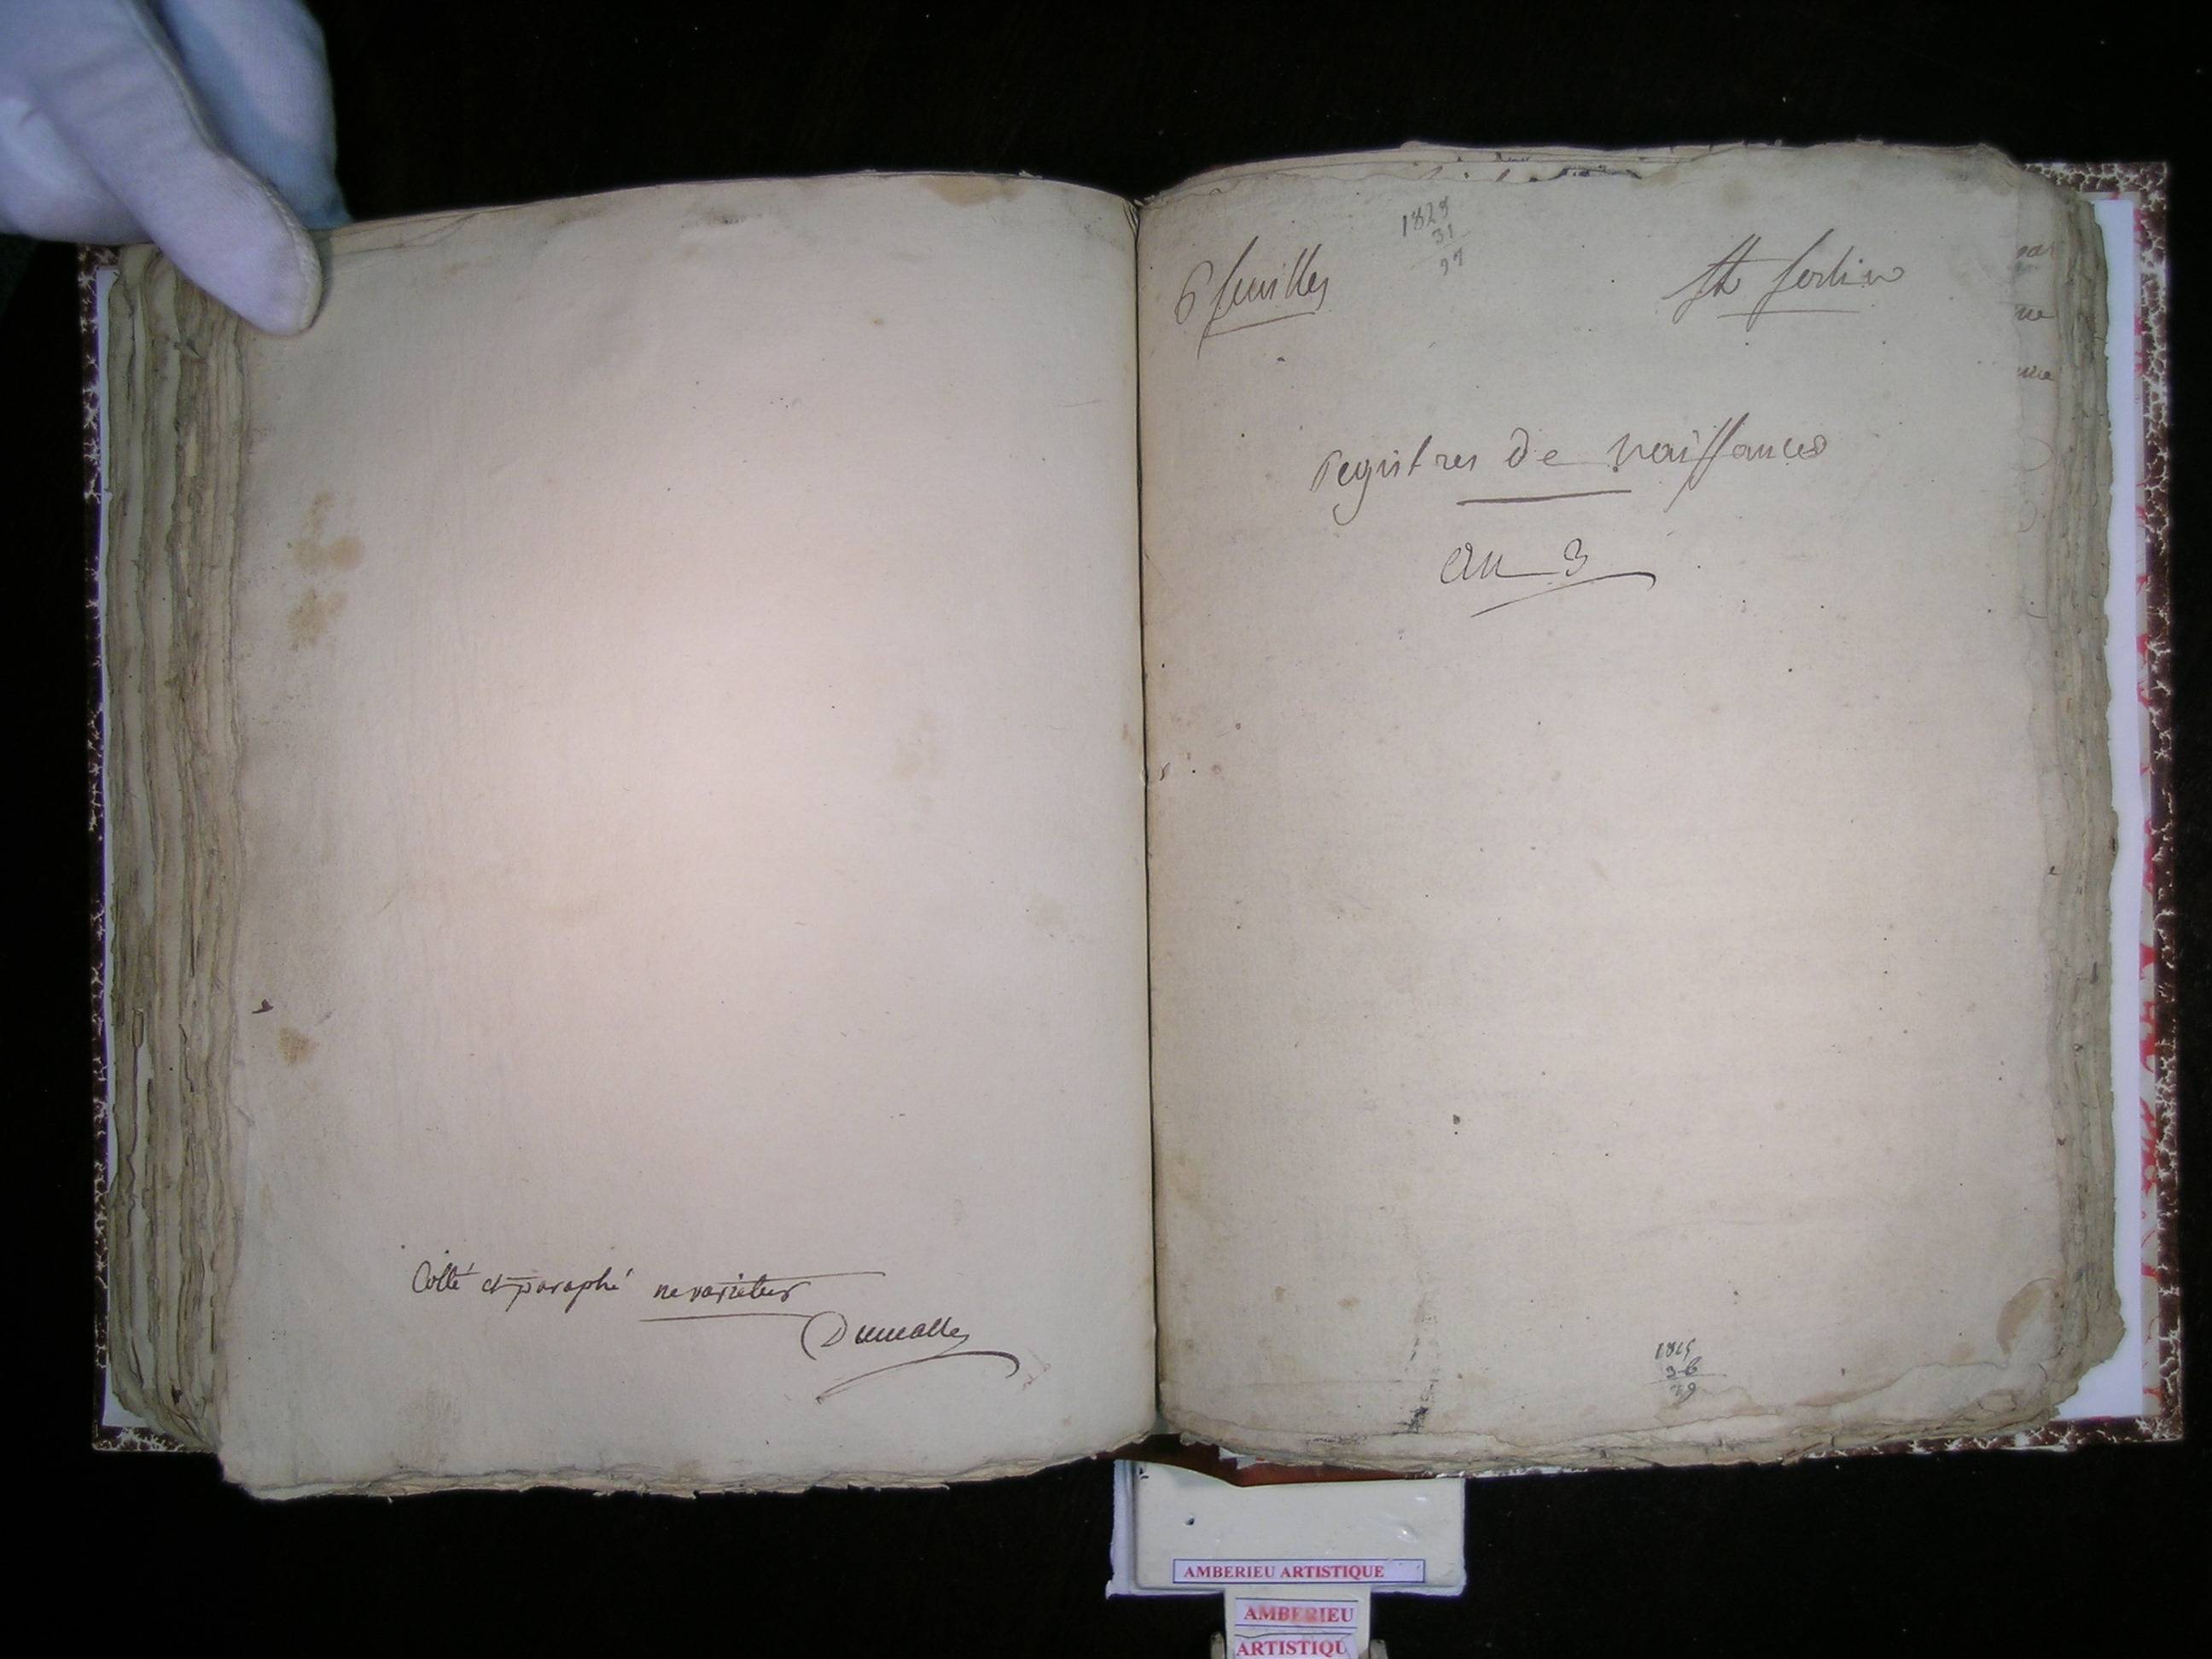 Cotté et paraphé ne varietur
Dumolle
6 feuilles
1828
31
97
St Sorlin
registres de naissances
an 3
1815
36
79
AMBERIEU ARTISTIQUE
AMBERIEU
ARTISTIQU